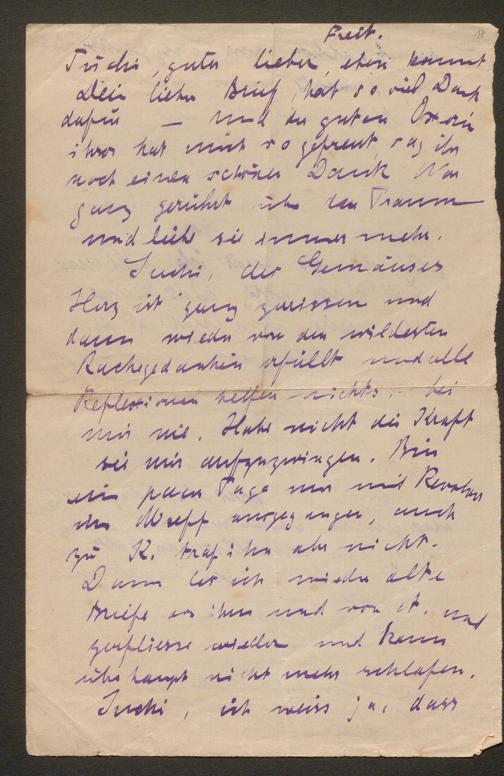 Freit.
Tuschi, guter lieber, eben kommt
Dein lieber Brief, hab so viel Dank
dafür — und den guten
ihres hat mich so gefreut sag ihr
noch einen schönen Dank War
ganz gerührt über den Traum
und liebe sie immer mehr.
Tuschi, der Gemäuses
Herz ist ganz zerrissen und
dann wieder von den wildesten
Rachegedanken erfüllt und alle
Reflexionen helfen nichts, bei
mir nie. Habe nicht die Kraft
sie mir aufzuzwingen. Bin
ein paar Tage nur mit Revolver
im Muff ausgegangen, auch
zu K. traf ihn aber nicht.
Dann les ich wieder alte
Briefe an ihn und von ihm und
zerfliesse wieder und kann
überhaupt nicht mehr schlafen.
Tuschi, ich weiss ja, dass